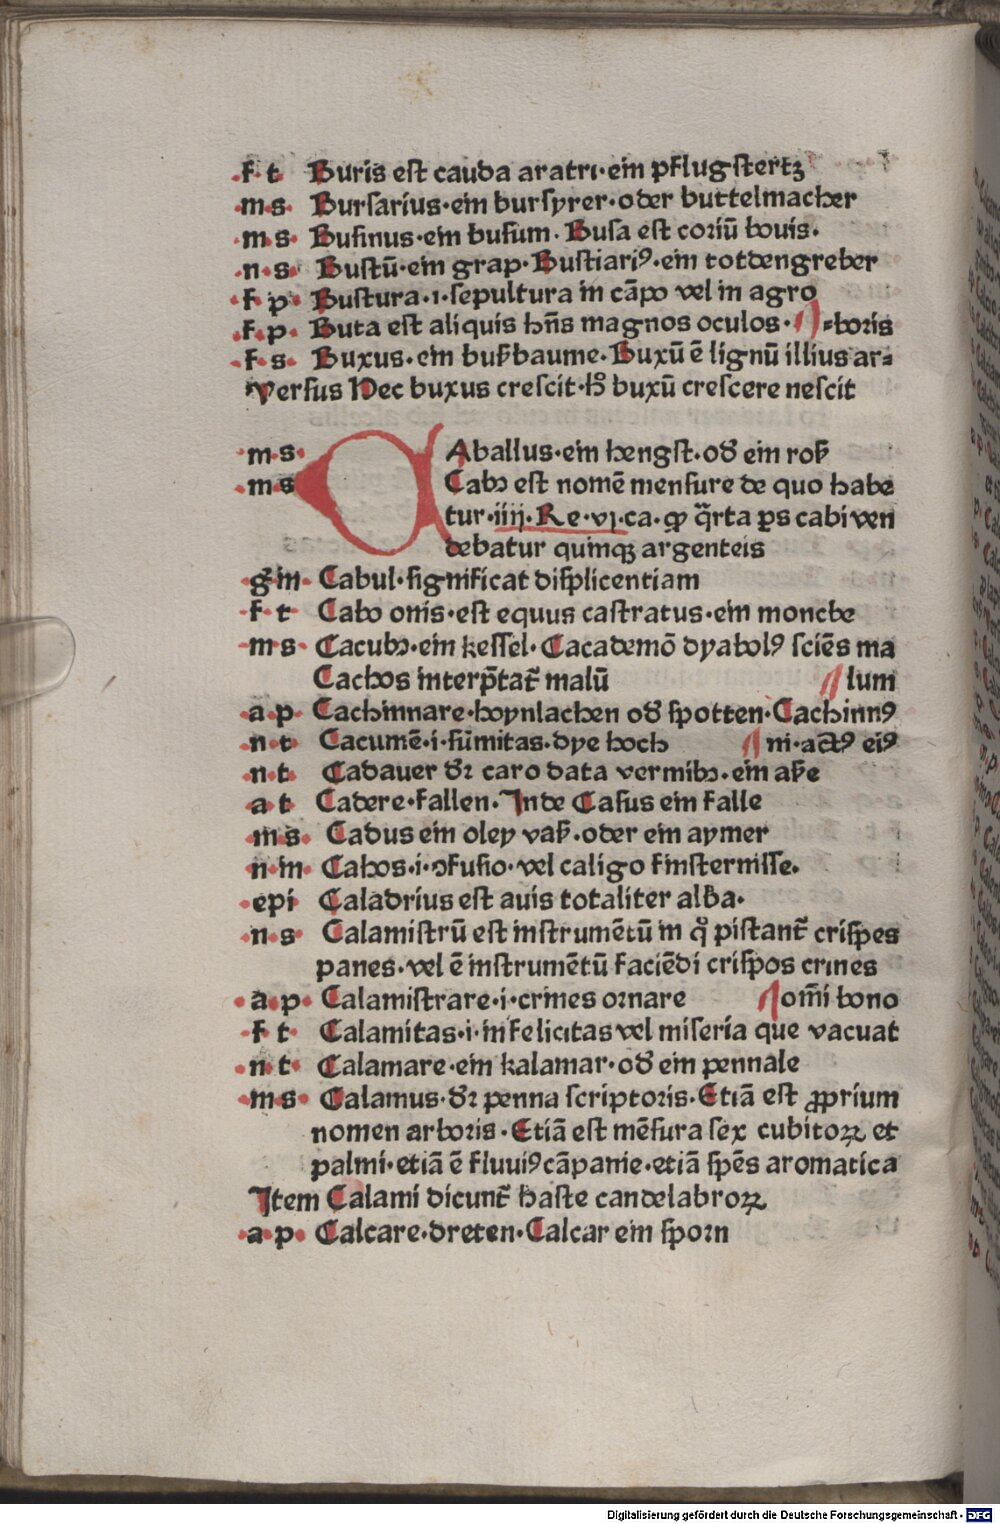 .f.t. Buris est cauda aratri·ein pflugstertz
.m.s. Bursarius·ein bursyrer·oder buttelmacher
.m.s. Businus·ein busum·Busa est coriū bouis.
.n.s. Bustū·ein grap·Bustiariꝰ·ein totdengreber
.f.p. Bustura·i·sepultura in cāpo vel in agro
.f.p. Buta est aliquis hn̄s magnos oculos. ¶-boris
.f.s. Buxus·ein bußbaume·Buxū ē lignū illius ar-
Versus Nec buxus crescit·hͦ buxū crescere nescit
.m.s. CAballus·ein hengst·od̄ ein roß
.m.s. Cabꝰ est nomē mensure de quo habe
tur·iiij·Re·vj·ca·ꝙ q̄rta ꝑs cabi ven
debatur quinqꝫ argenteis
.g.in. Cabul·significat displicentiam
.f.t. Cabo onis·est equus castratus·ein monche
.m.s. Cacubꝰ·ein kessel·Cacademō dyabolꝰ sciēs ma
Cachos interp̄tat̄ malū ¶lum
.a.p. Cachinnare·hoynlachen od̄ spotten·Cachinnꝰ
.n.t. Cacumē·i·sūmitas·dye hoch ¶ni·actꝰ eiꝰ
.n.t. Cadauer dr̄ caro data vermibꝰ·ein aße
.a.t. Cadere·fallen·Inde Casus ein falle
.m.s. Cadus ein oley vaß·oder ein aymer
.n.in. Cahos·i·ꝯfusio·vel caligo finsternisse.
.epi. Caladrius est auis totaliter alba.
.n.s. Calamistrū est instrumētū in qͦ pistant̄ crispes
panes·vel ē instrumētū faciēdi crispos crines
.a.p. Calamistrare·i·crines ornare ¶om̄i bono
.f.t. Calamitas·i·infelicitas vel miseria que vacuat
.n.t. Calamare·ein kalamar·od̄ ein pennale
.m.s. Calamus·dr̄ penna scriptoris·Etiā est ꝓprium
nomen arboris·Etiā est mēsura sex cubitoꝝ et
palmi·etiā ē fluuiꝰ cāpanie·etiā spēs aromatica
Item Calami dicunt̄ haste candelabroꝝ
.a.p. Calcare·dreten·Calcar ein sporn
Digitalisierung gefördert durch die Deutsche Forschungsgemeinschaft - DFG